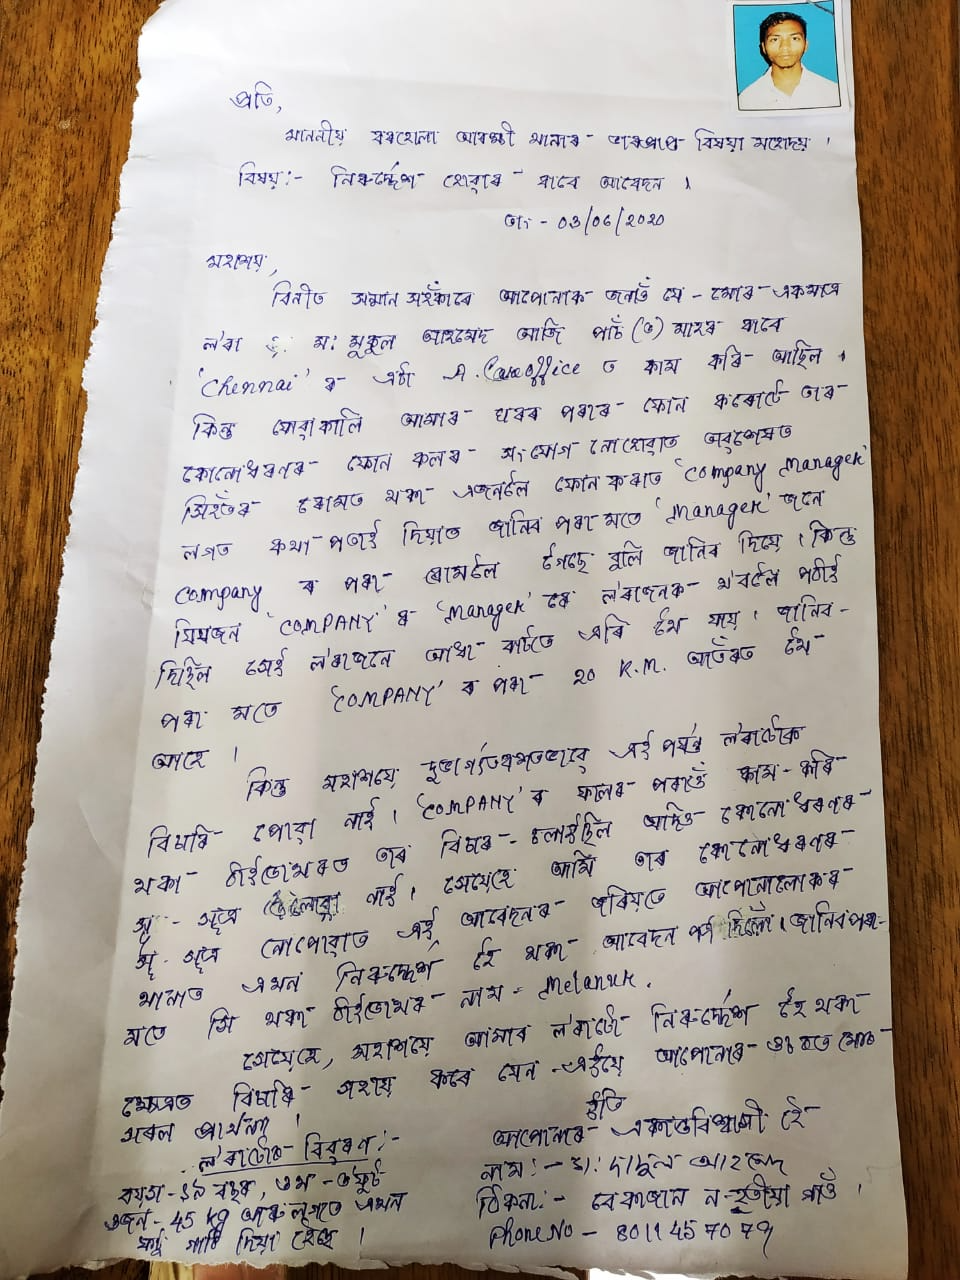 প্ৰতি,
মাননীয় বৰহোলা আৰক্ষী থানাৰ ভাৰপ্ৰাপ্ত বিষয়া মহোদয় ।
বিষয়:- নিৰুদ্দেশ হোৱাৰ বাবে আবেদন ।
তাং - 03/06/2020
মহাশয়,
বিনীত সন্মান সহকাৰে আপোনাক জনাওঁ যে - মোৰ একমাত্ৰ
ল'ৰা মঃ মুকুল আহমেদ আজি পাচঁ (৫) মাহৰ বাবে
'Chennai' ৰ এটা এ. Careoffice ত কাম কৰি আছিল ।
কিন্তু যোৱাকালি আমাৰ ঘৰৰ পৰা ফোন কৰোতে তাৰ
কোনোধৰণৰ ফোন কলৰ সংযোগ নোহোৱাত অৱশেষত
সিহঁতৰ ৰোমত থকা এজনলৈ ফোন কৰাত 'Company Manager'
লগত কথা পতাই দিয়াত জানিব পৰা মতে 'Manager' জনে
Company ৰ পৰা গৈছে বুলি জানিব দিয়ে । কিন্তু
যিজন 'COMPANY' ৰ 'Manager' ৰে ল'ৰাজনক ঘ'ৰলৈ পঠাই
দিছিল সেই ল'ৰাজনে আধা বাটতে এৰি থৈ যায় । জানিব
পৰা মতে 'COMPANY' ৰ পৰা 20 K.M. আঁতৰত থৈ
আহে ।
কিন্তু মহাশয়ে দুৰ্ভাগ্যবশতভাৱে এই পৰ্যন্ত ল'ৰাটোক
বিচাৰি পোৱা নাই । 'COMPANY' ৰ ফালৰ পৰাও কাম কৰি
থকা ঠাইডোখৰত তাৰ বিচাৰ চলাইছিল যদিও কোনোধৰণৰ
সূ - সূত্ৰ নাই । সেয়েহে আমি তাৰ কোনোধৰণৰ
সূ - সূত্ৰ নোপোৱাত এই আবেদনৰ জৰিয়তে আপোনালোকৰ
থানাত এখন নিৰুদ্দেশ হৈ থকা আবেদন পত্ৰ দিলোঁ । জানিব পৰা
মতে সি থকা ঠাইডোখৰ নাম = Melanur.
সেয়েহে, মহাশয়ে আমাৰ ল'ৰাটো নিৰুদ্দেশ হৈ থকা
ক্ষেত্ৰত বিচাৰি সহায় কৰে যেন এইয়ে আপোনাৰ ওচৰত মোৰ
সৰল প্ৰাৰ্থনা ।
ইতি
ল'ৰাটোৰ বিৱৰণ :-
আপোনাৰ একান্তবিশ্বাসী হৈ
বয়স - ১৯ বছৰ, ফুট
নাম :- আহমেদ
ওজন - 45 kg আৰু লগতে এখন
ঠিকনা :- গাওঁ ।
দিয়া হৈছে ।
Phone No - 8011457079